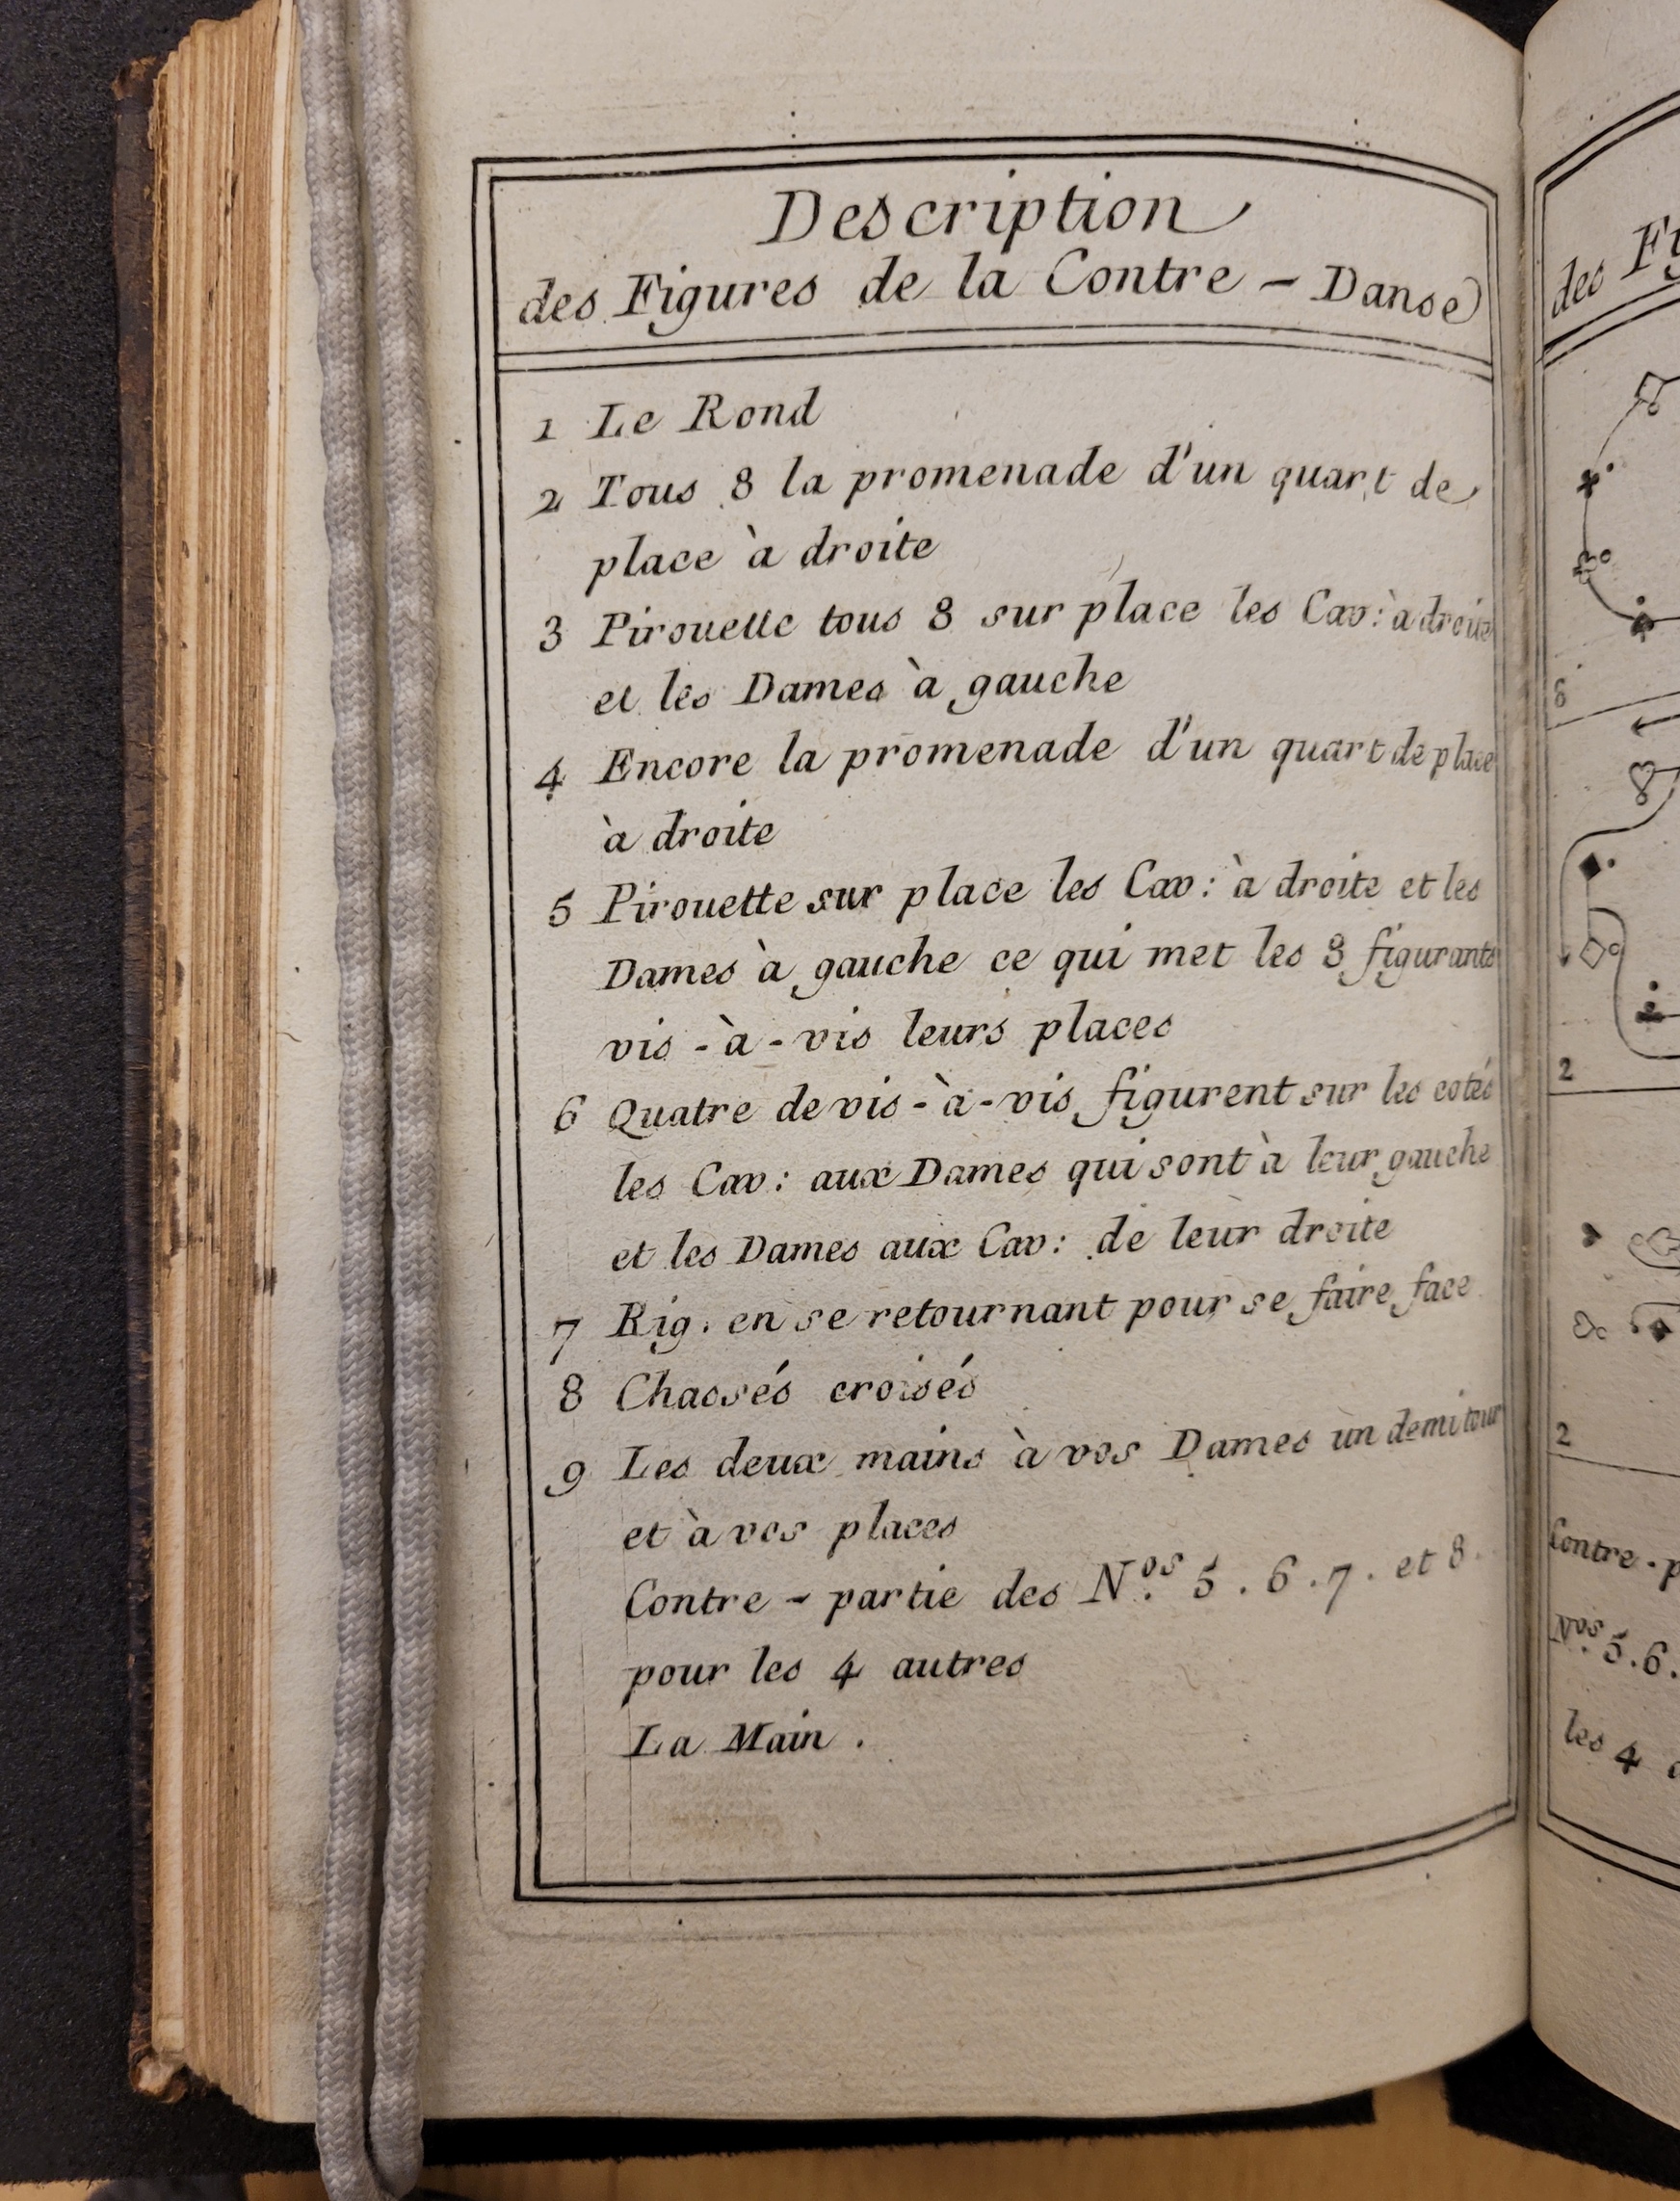 Description
des Figures de la Contre - Danse
1 Le Rond
2 Tous 8 la promenade d'un quart de
place à droite
3 Pirouette tous 8 sur place les Cav: à droite
et les Dames à gauche
4 Encore la promenade d'un quart de place
à droite
5 Pirouette sur place les Cav: à droite et les
Dames à gauche ce qui met les 8 figurants
vis-à-vis leurs places
6 Quatre de vis-à-vis figurent sur les cotés
les Cav: aux Dames qui sont à leur gauche
et les Dames aux Cav: de leur droite
7 Rig. en se retournant pour se faire face
8 Chassés croisés
9 Les deux mains à vos Dames un demi tour
et à vos places
Contre - partie des N.os 5 . 6 . 7 . et 8 .
pour les 4 autres
La Main .
des
6
2
2
Contre - p
N.os 5 . 6 .
les 4